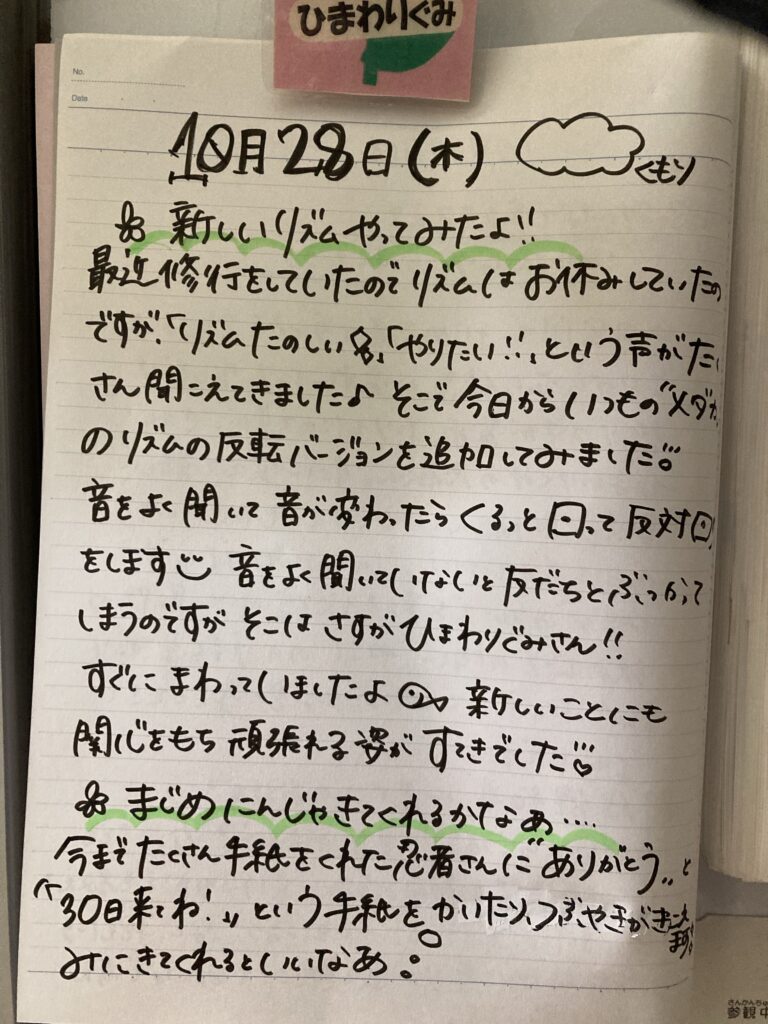 ひまわりぐみ
No.
Date
10月28日(木) くもり
新しいリズムやってみたよ!!
最近修行をしていたのでリズムはお休みしていたの
ですが、「リズムたのしい」「やりたい!!」という声がた
さん聞こえてきました♪ そこで今日からいつもの"メダカ
のリズムの反転バージョンを追加してみました!!
音をよく聞いて音が変わったらくるっと回って反対回
をします 音をよく聞いていないと友だちとぶつかって
しまうのですが そこは さすがひまわりぐみさん!!
すぐに まわってしましたよ 新しいことにも
関心をもち 頑張れる姿が すてきでした♡
まじめにんじゃきてくれるかなぁ‥‥
今まで たくさん手紙をくれた忍者さんに"ありがとう"と
"30日来てね!"という手紙を かいたり、つぶやきがきこえ
ます
みにきてくれるといいなぁ。
さんかんちゅう
参観中